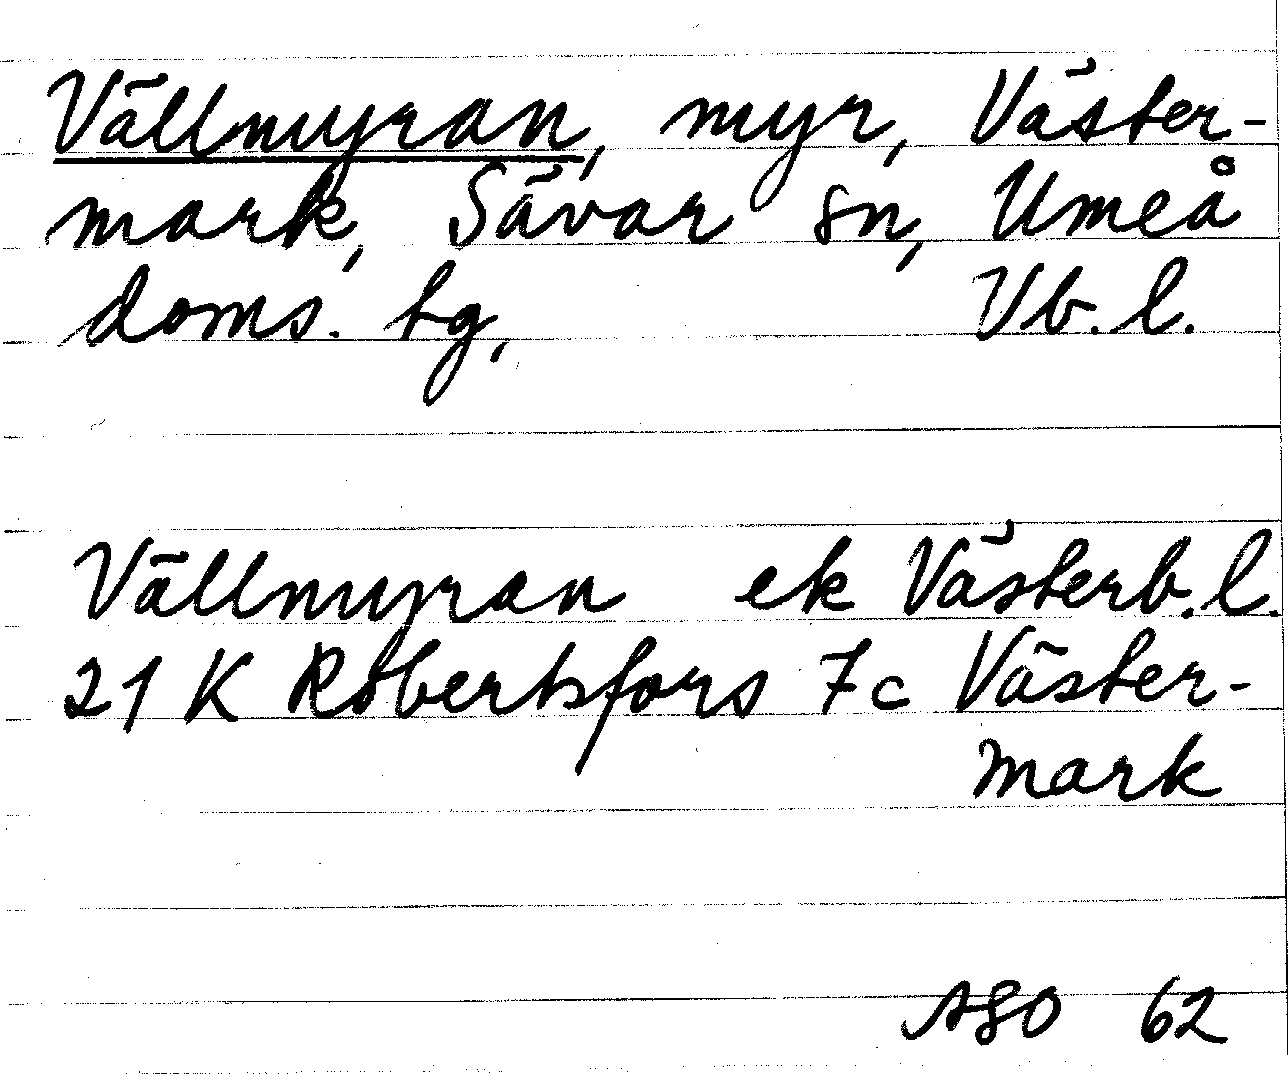 Vällmyran, myr, Väster-
mark, Sävar sn, Umeå
doms. tg, Vb. l.
Vällmyran ek Västerb. l.
21 K Robertsfors 7c Väster-
mark
ASO 62